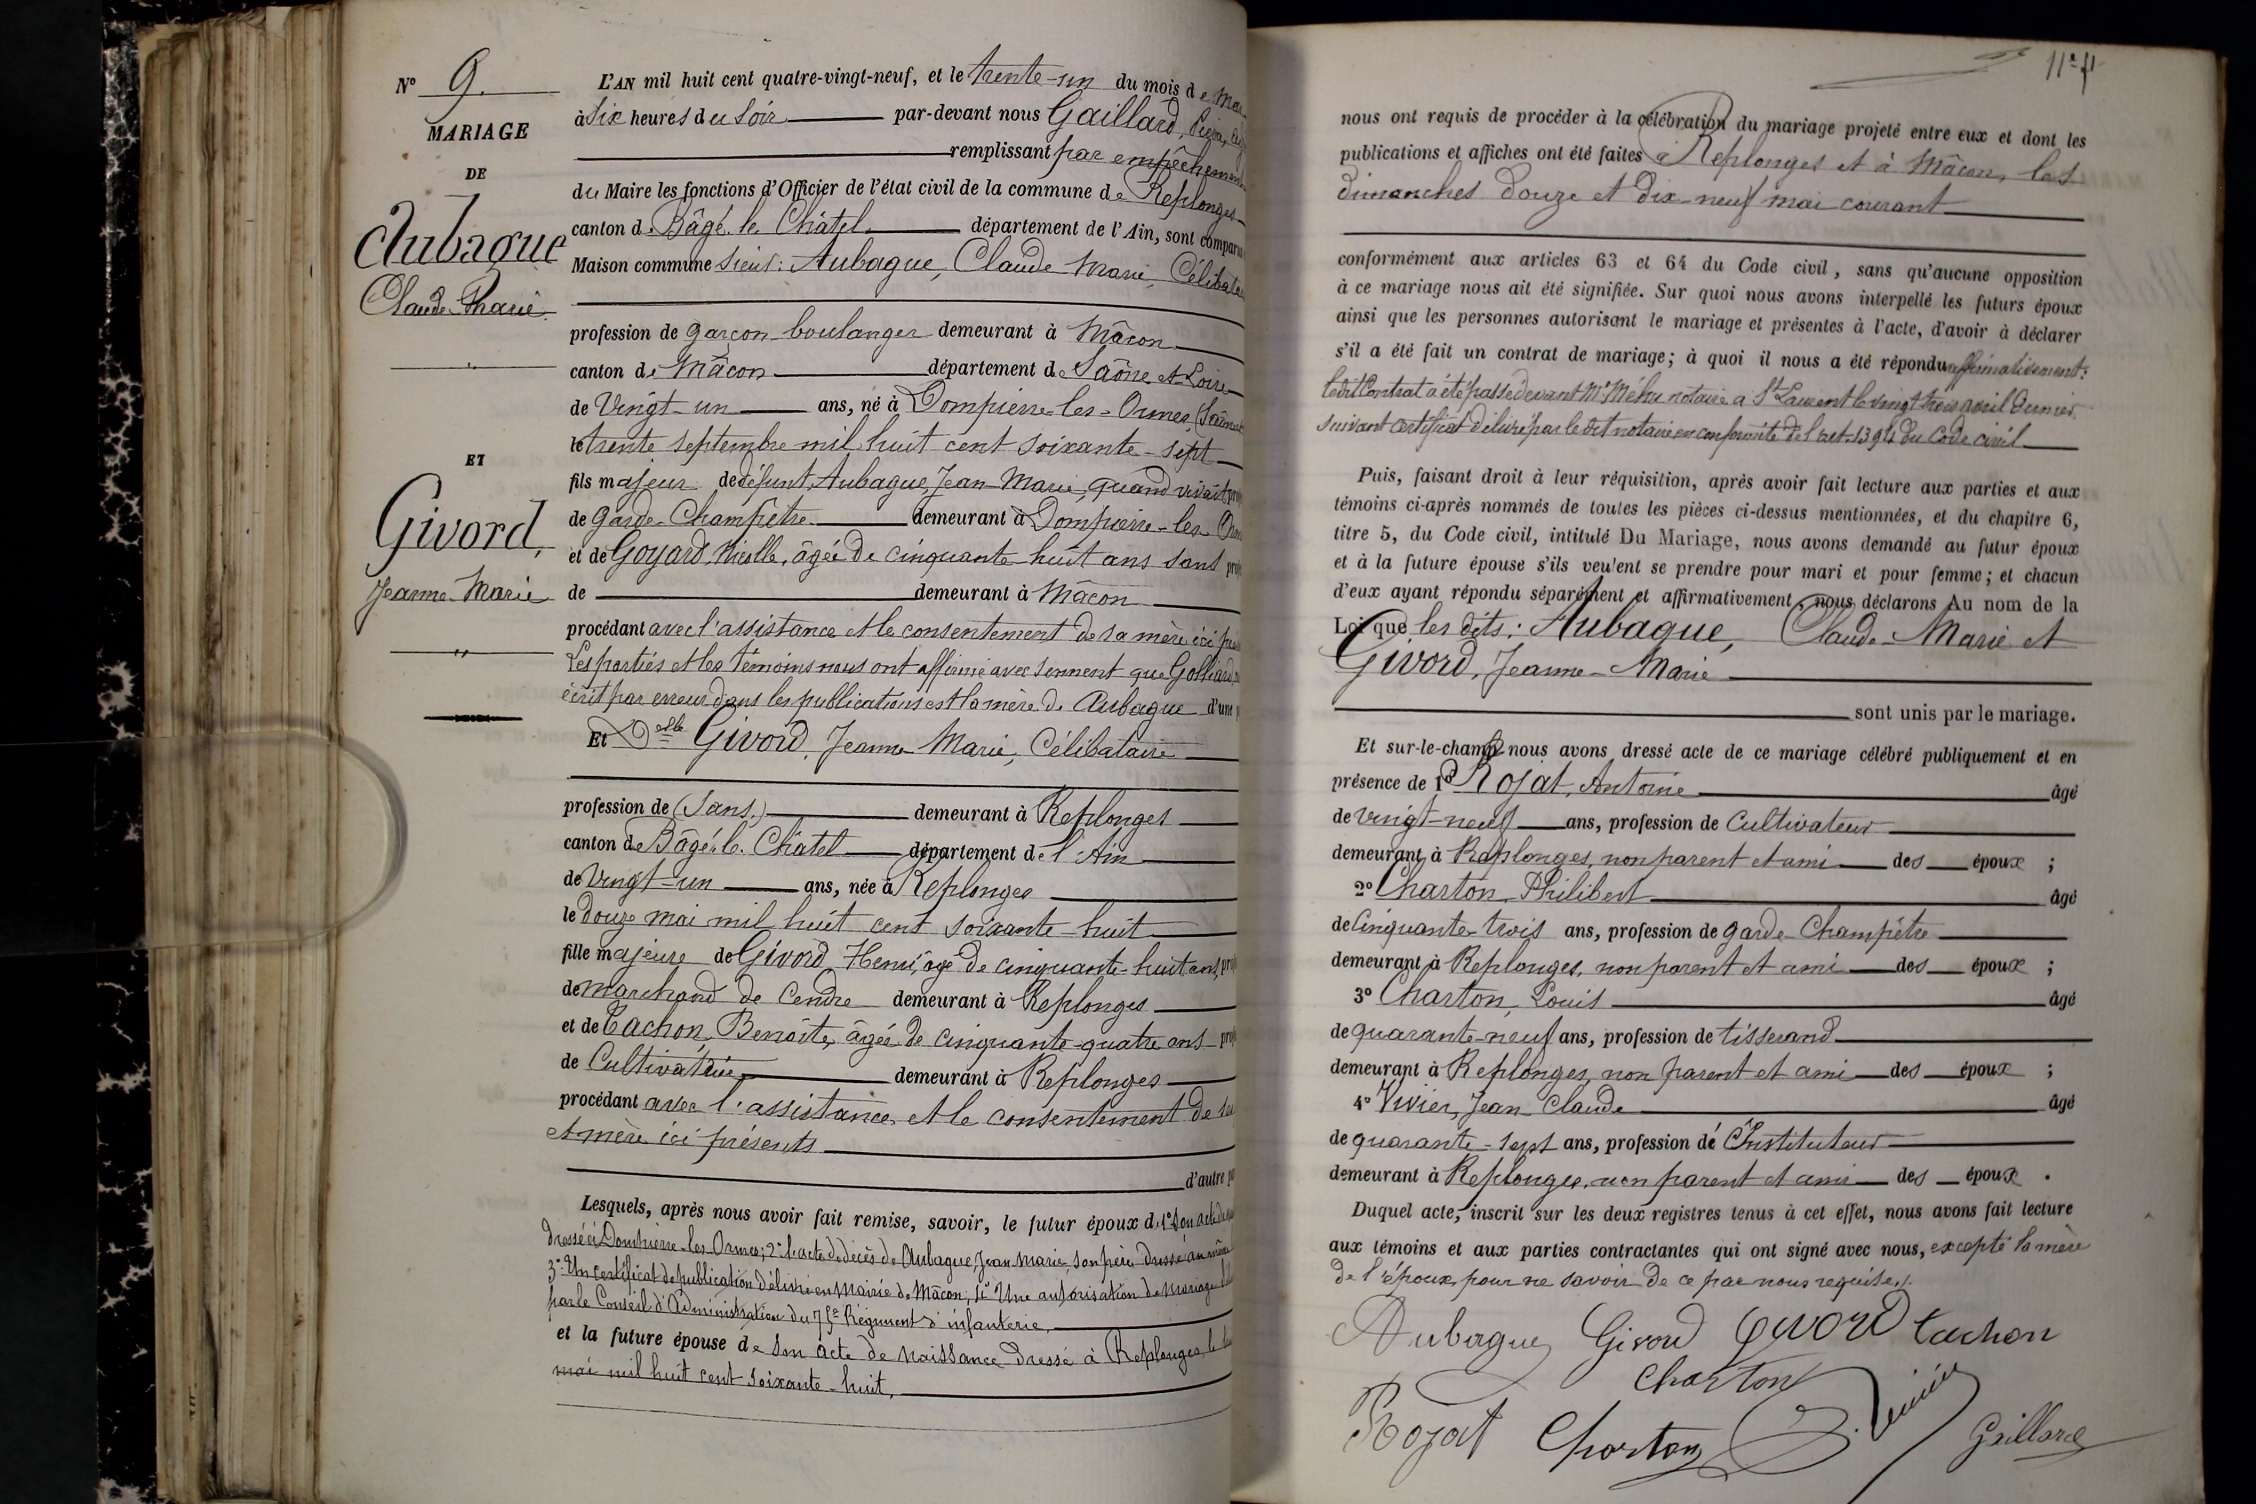 N° 9.
MARIAGE
DE
Aubague
Claude-Marie
ET
Givord,
Jeanne-Marie
L'AN mil huit cent quatre-vingt-neuf, et le trente-un du mois de Mai
à six heures du soir par-devant nous Gaillard,
remplissant par empêchement
du Maire les fonctions d'Officier de l'état civil de la commune de Replonges
canton de Bâgé-le-Châtel département de l'Ain, sont comparu
Maison commune sieur: Aubague, Claude Marie, Célibataire
profession de garçon boulanger demeurant à Mâcon
canton de Mâcon département de Saône et Loire
de Vingt-un ans, né à Dompierre-les-Ormes, (Saône et
le trente septembre mil huit cent soixante-sept
fils majeur de défunt Aubague, Jean-Marie, quand vivait
de garde-Champêtre demeurant à Dompierre-les-Ormes
et de Goyard, Nicolle, âgée de cinquante-huit ans sans
de demeurant à Mâcon
procédant avec l'assistance et le consentement de sa mère ici
Les parties et les témoins nous ont affirmé avec serment que
écrit par erreur dans les publications est la mère de Aubague d'une
Et Delle Givord, Jeanne Marie, Célibataire
profession de (Sans.) demeurant à Replonges
canton de Bâgé-le-Châtel département de l'Ain
de Vingt-un ans, née à Replonges
le douze mai mil huit cent soixante-huit
fille majeure de Givord Henri, âgé de cinquante-huit ans,
de marchand de Cendre demeurant à Replonges
et de Tachon, Benoîte, âgée de cinquante-quatre ans
de Cultivatrice demeurant à Replonges
procédant avec l'assistance et le consentement de ses
et mère ici présents
d'autre
Lesquels, après nous avoir fait remise, savoir, le futur époux de 1° son acte de
dressé à Dompierre-les-Ormes; 2° l'acte de décès de Aubague, Jean Marie, son père dressé au même
3° Un certificat de publication délivré en Mairie de Mâcon; 4° Une autorisation de mariage
par le Conseil d'Administration du Régiment d'infanterie.
et la future épouse de son acte de naissance dressé à Replonges, le
mai mil huit cent soixante-huit,
nous ont requis de procéder à la célébration du mariage projeté entre eux et dont les
publications et affiches ont été faites à Replonges et à Mâcon, les
dimanches douze et dix-neuf mai courant
conformément aux articles 63 et 64 du Code civil, sans qu'aucune opposition
à ce mariage nous ait été signifiée. Sur quoi nous avons interpellé les futurs époux
ainsi que les personnes autorisant le mariage et présentes à l'acte, d'avoir à déclarer
s'il a été fait un contrat de mariage; à quoi il nous a été répondu affirmativement:
ledit Contrat a été passé devant Me Méhu notaire à St Laurent le vingt trois avril dernier
suivant certificat délivré par le dit notaire en conformité de l'art. 1394 du Code civil
Puis, faisant droit à leur réquisition, après avoir fait lecture aux parties et aux
témoins ci-après nommés de toutes les pièces ci-dessus mentionnées, et du chapitre 6,
titre 5, du Code civil, intitulé Du Mariage, nous avons demandé au futur époux
et à la future épouse s'ils veulent se prendre pour mari et pour femme; et chacun
d'eux ayant répondu séparément et affirmativement, nous déclarons Au nom de la
Loi que les dits: Aubague, Claude-Marie et
Givord, Jeanne-Marie
sont unis par le mariage.
Et sur-le-champ nous avons dressé acte de ce mariage célébré publiquement et en
présence de 1° Rojat, Antoine âgé
de vingt-neuf ans, profession de Cultivateur
demeurant à Replonges, non parent et ami des époux ;
2° Charton, Philibert âgé
de Cinquante-trois ans, profession de garde-Champêtre
demeurant à Replonges, non parent et ami des époux ;
3° Charton, Louis âgé
de quarante-neuf ans, profession de tisserand
demeurant à Replonges, non parent et ami des époux ;
4° Vivier, Jean-Claude âgé
de quarante-sept ans, profession d'Instituteur
demeurant à Replonges, non parent et ami des époux .
Duquel acte, inscrit sur les deux registres tenus à cet effet, nous avons fait lecture
aux témoins et aux parties contractantes qui ont signé avec nous, excepté la mère
de l'époux, pour ne savoir de ce par nous requise.
Aubague Givord Givord tachon
Charton
Rojat Charton Vivier Gaillard